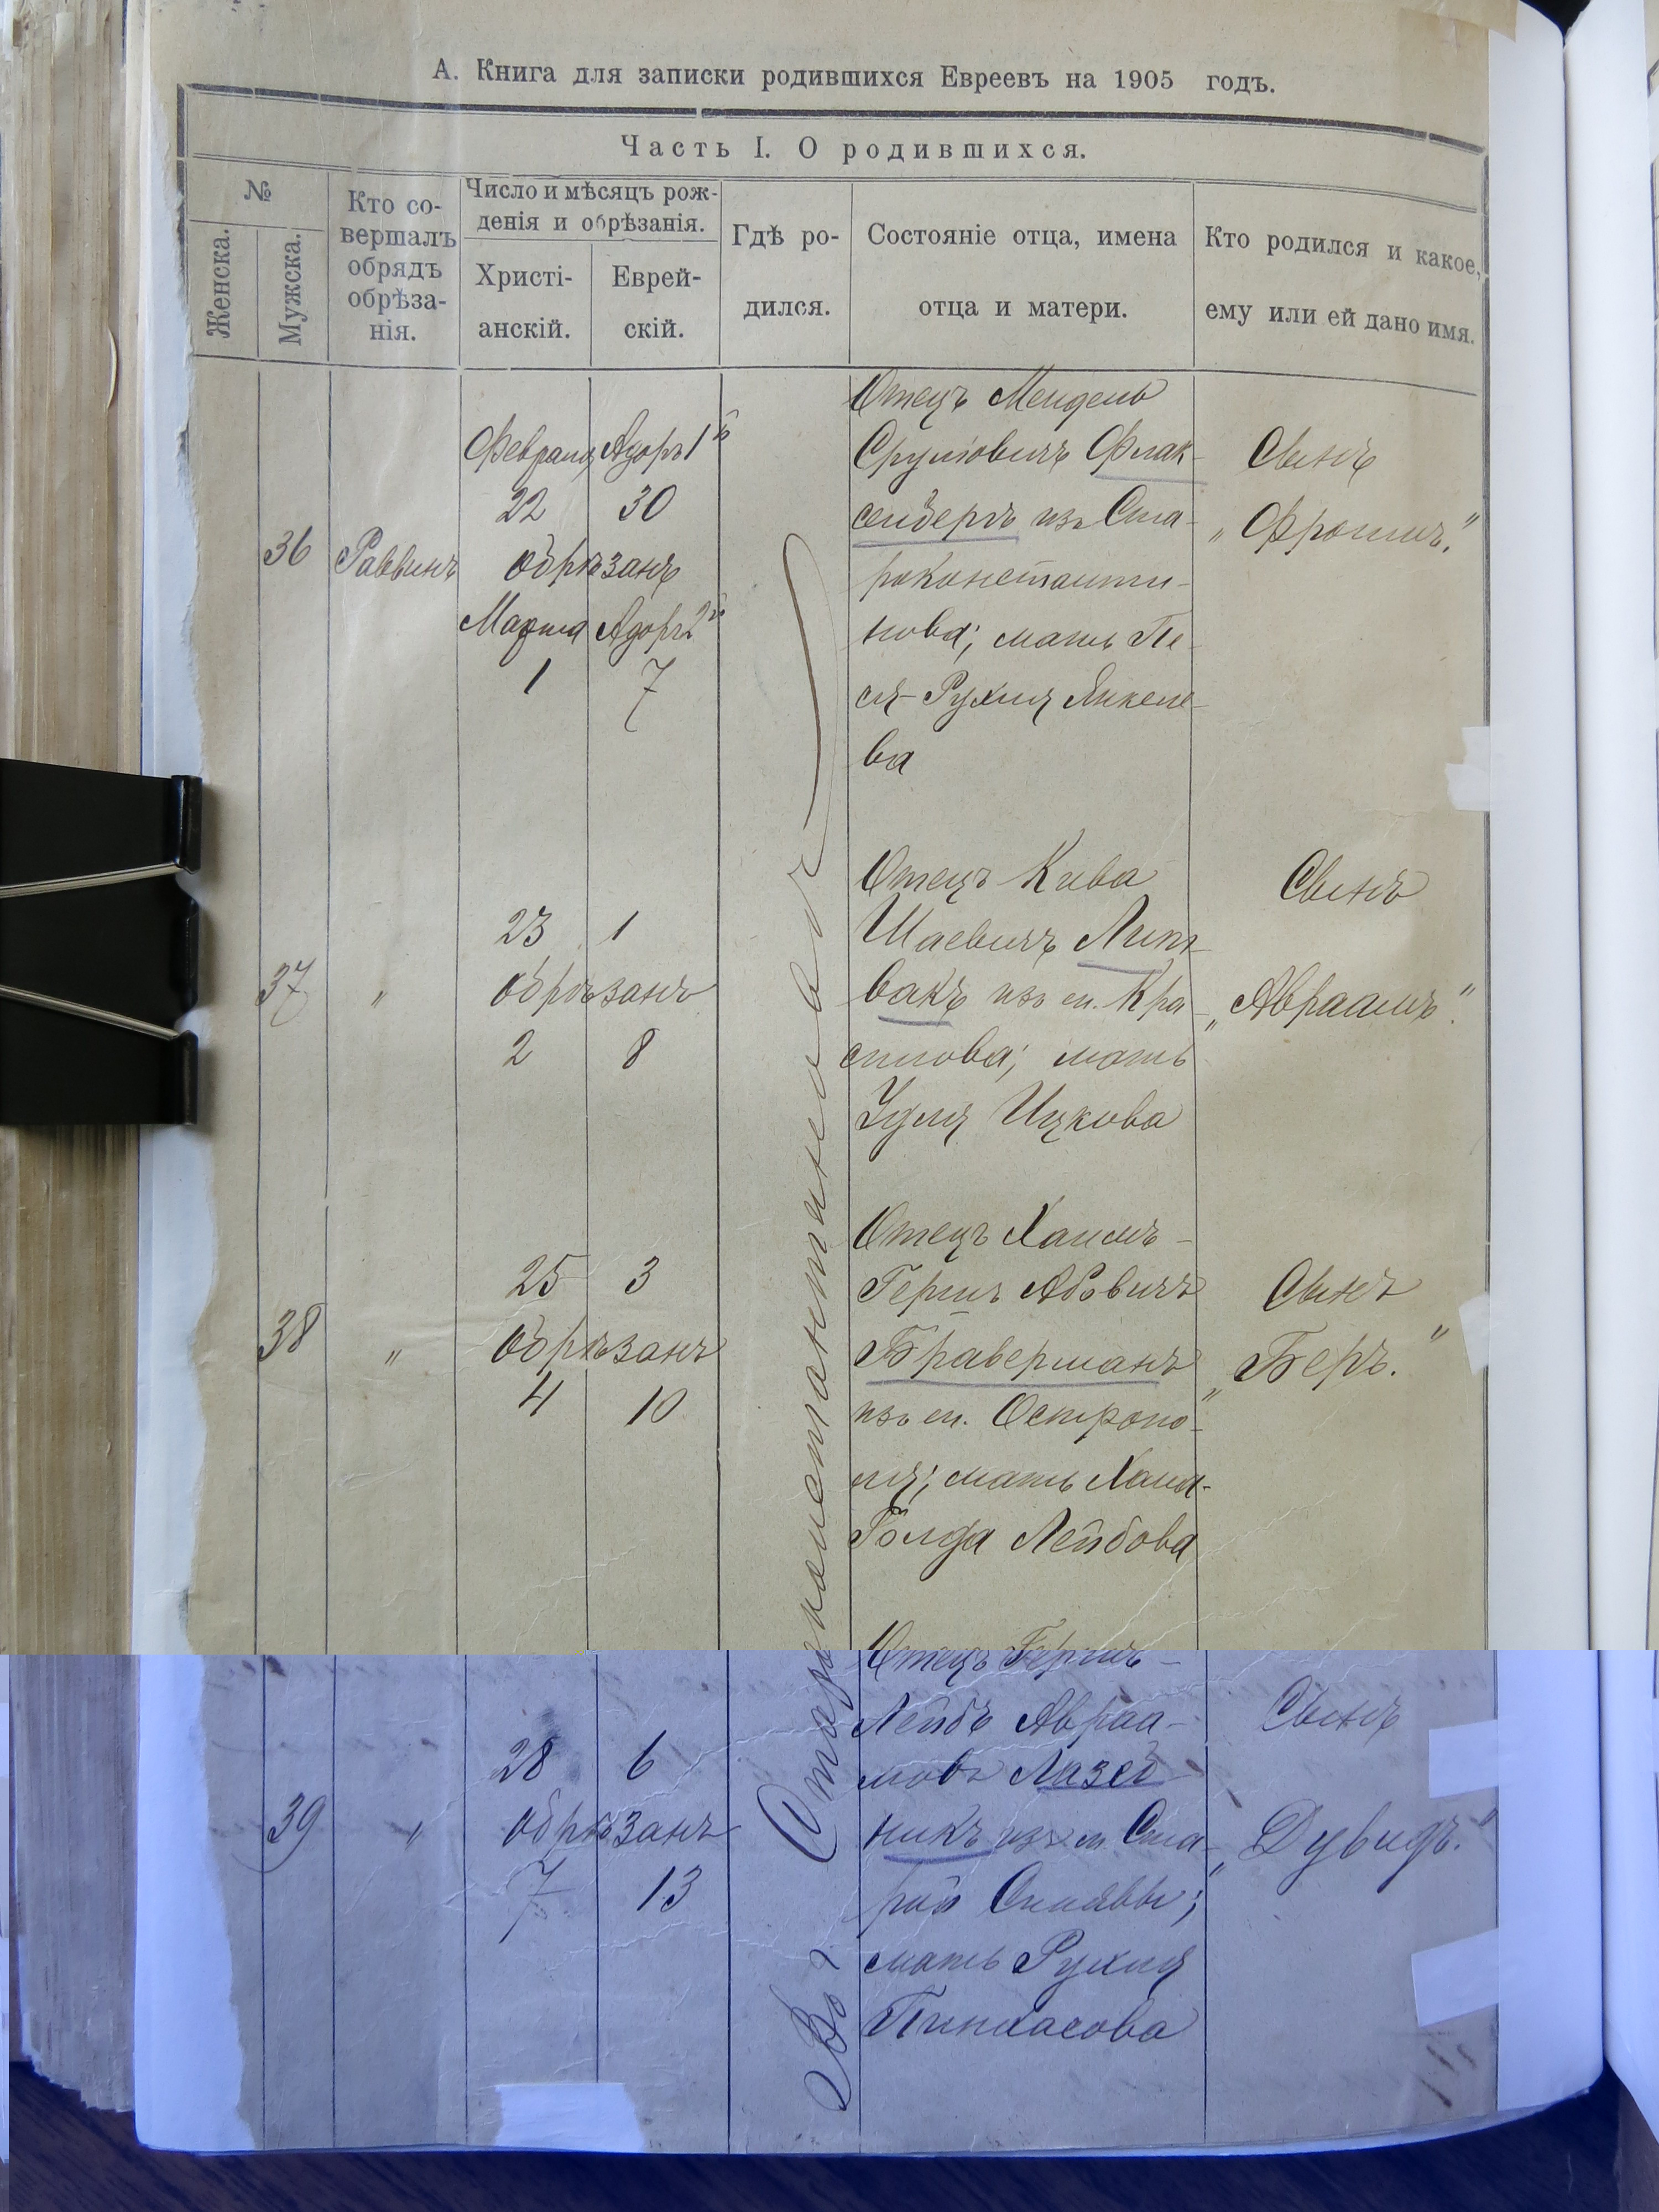 А. Книга для записки родившихся Евреевъ на 1905 годъ.
Часть I. О родившихся.
№
Женска.
Мужска.
Кто со-
вершалъ
обрядъ
обрѣза-
нія.
Число и мѣсяцъ рож-
денія и обрѣзанія.
Христі-
анскій.
Еврей-
скій.
Гдѣ ро-
дился.
Состояніе отца, имена
отца и матери.
Кто родился и какое,
ему или ей дано имя.
36
Раввинъ
Февраля Адоръ 1й
22 30
обрѣзанъ
Марта Адоръ 2й
1 7
Во г. Староконстантиновѣ
Отецъ Мендель
Сруліовичъ Флак-
сенбергъ изъ Ста-
роконстанти-
нова; мать Пе-
ся-Рухля Янкеле-
ва
Сынъ
„Фроимъ."
37
"
23 1
обрѣзанъ
2 8
Отецъ Кива
Шаевичъ Лит-
вакъ изъ м. Кра-
силова; мать
Удля Ицкова
Сынъ
„Авраамъ".
38
"
25 3
обрѣзанъ
4 10
Отецъ Хаимъ-
Гершъ Абовичъ
Браверманъ
изъ м. Остропо-
ля; мать Хана-
Голда Лейбова
Сынъ
„Беръ."
39
"
28 6
обрѣзанъ
7 13
Отецъ Гершъ-
Лейбъ Авраа-
мовъ Лазеб-
никъ изъ м. Ста-
рой Синявы;
мать Рухля
Пинхасова
Сынъ
„Дувидъ."